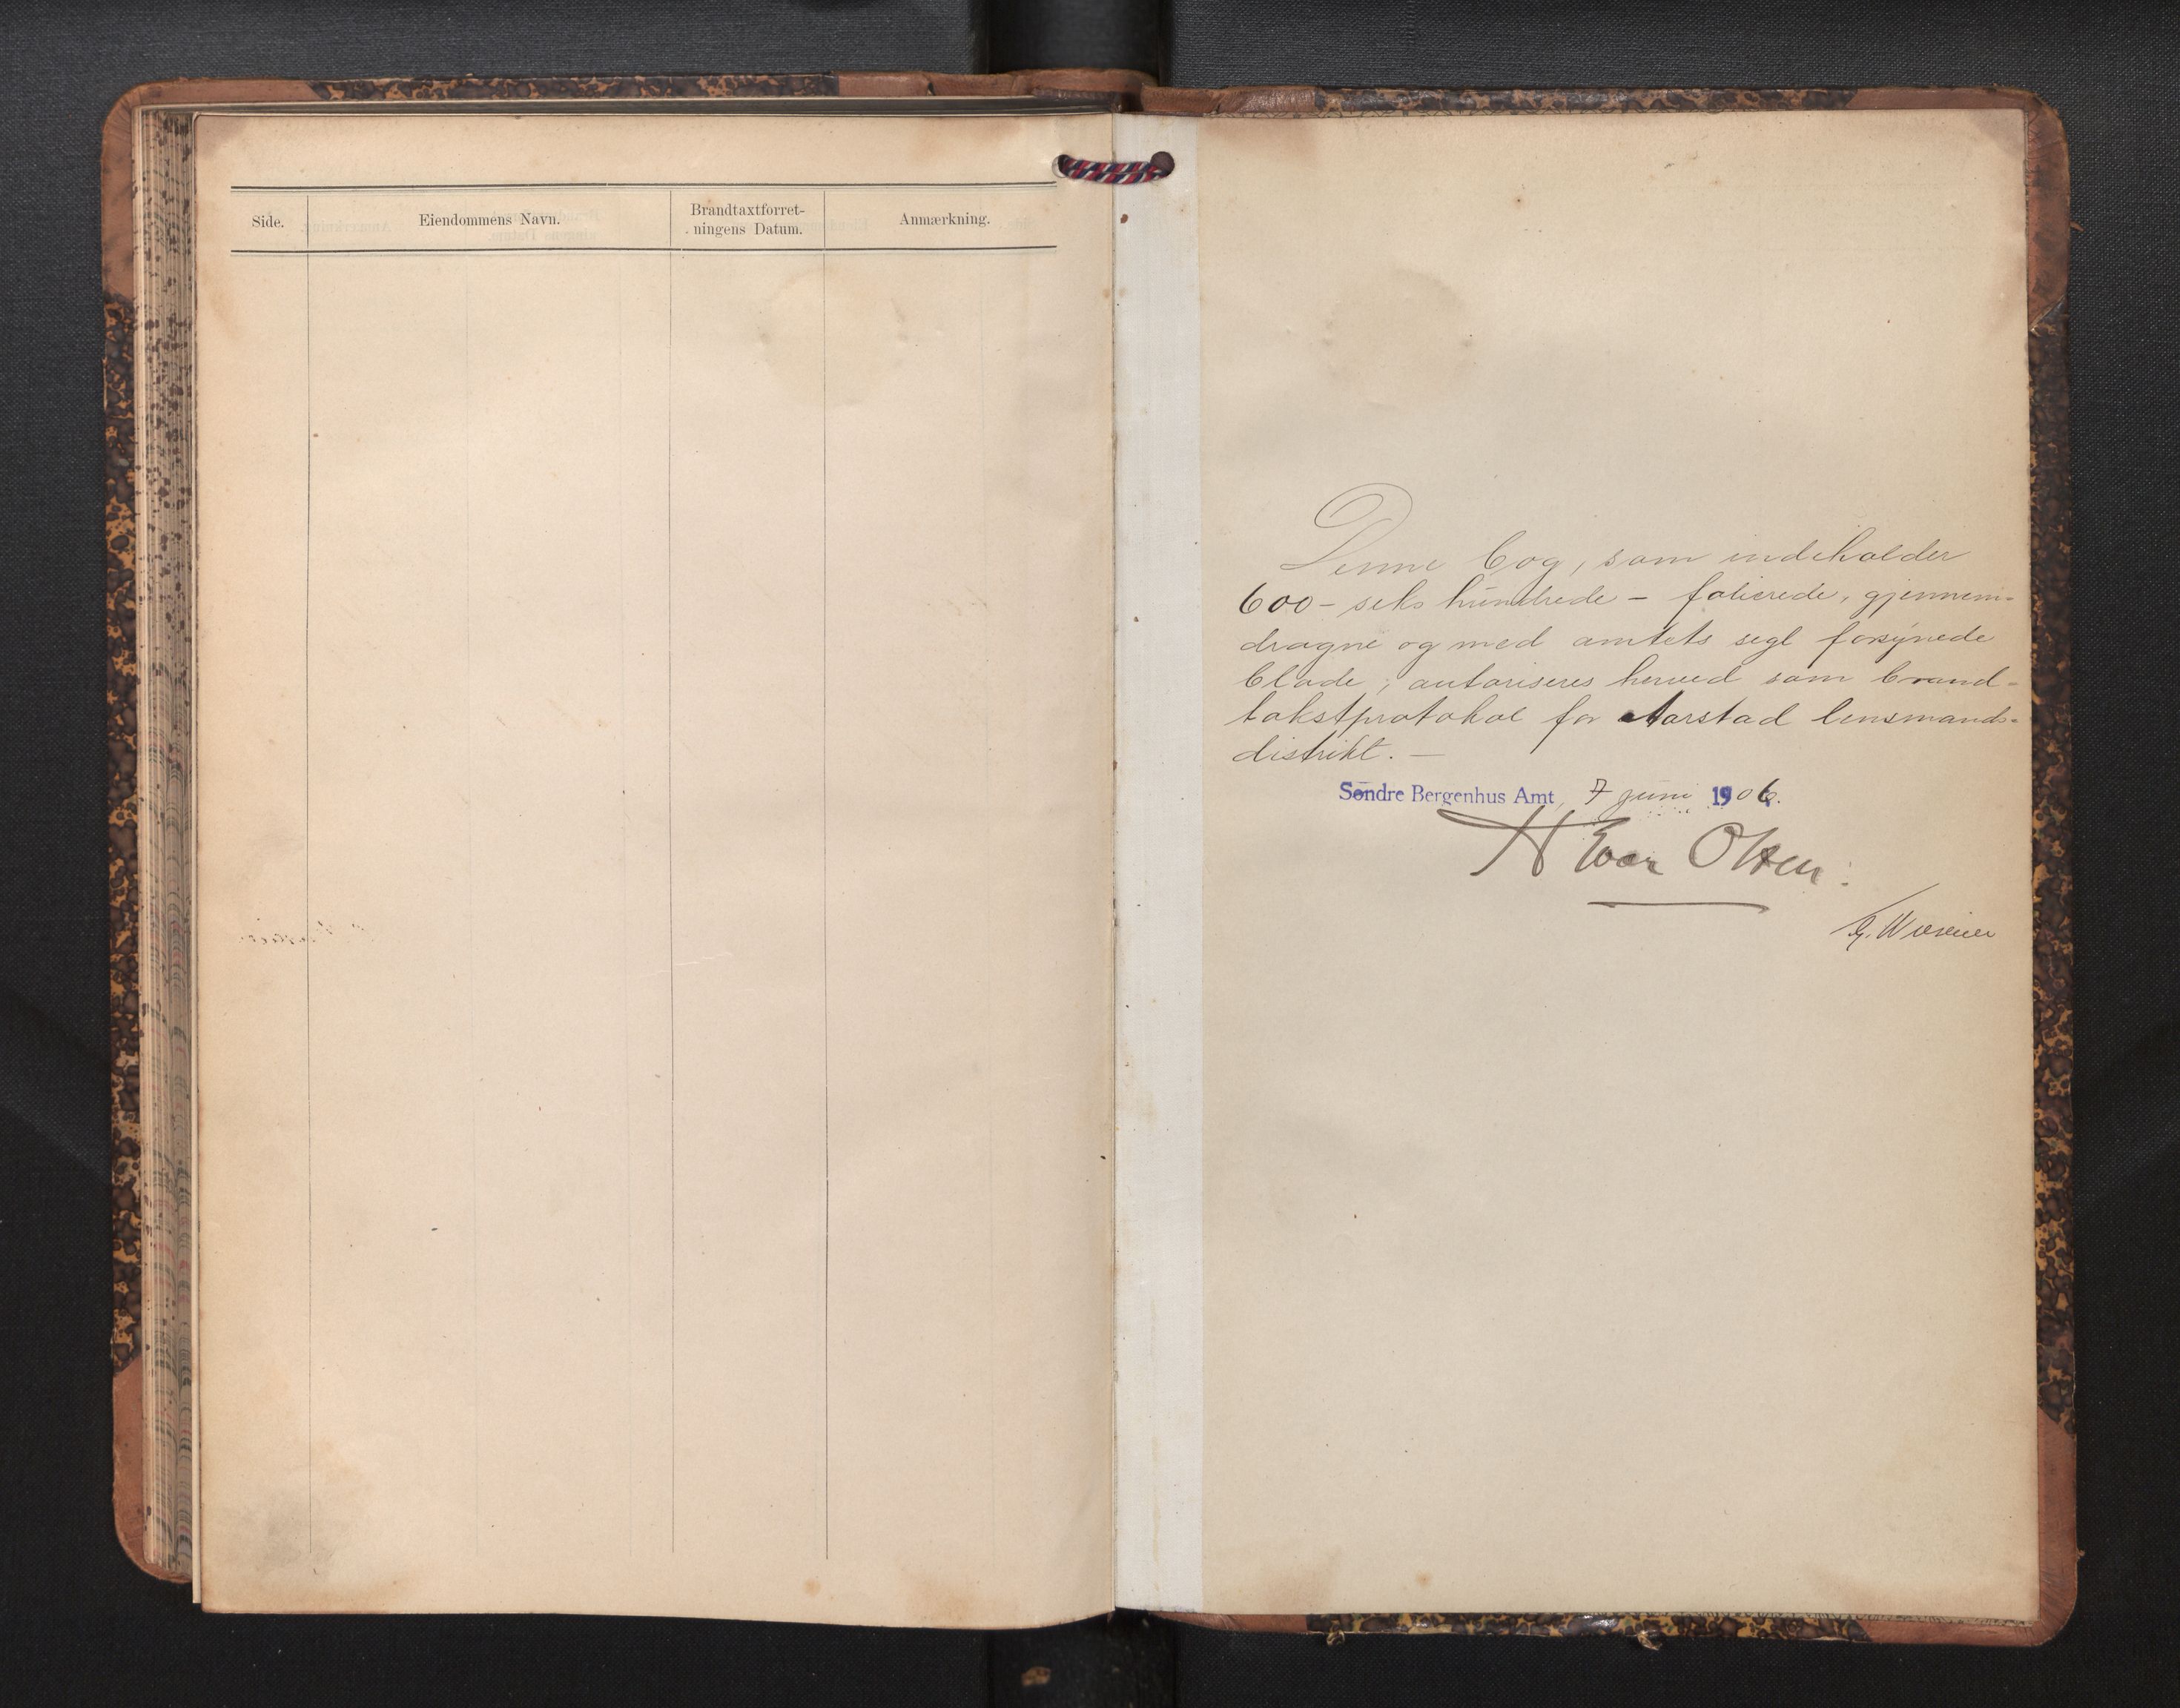 Side.
Eiendommens Navn.
Brandtaxtforret-
ningens Datum.
Anmærkning.
Denne bog, som indeholder
600 - seks hundrede - folierede, gjennem-
dragne og med amtets segl forsynede
blade, autoriseres herved som brand-
takstprotokol for Aarstad lensmands-
distrikt. -
Søndre Bergenhus Amt, 7 juni 1906.
Olsen.